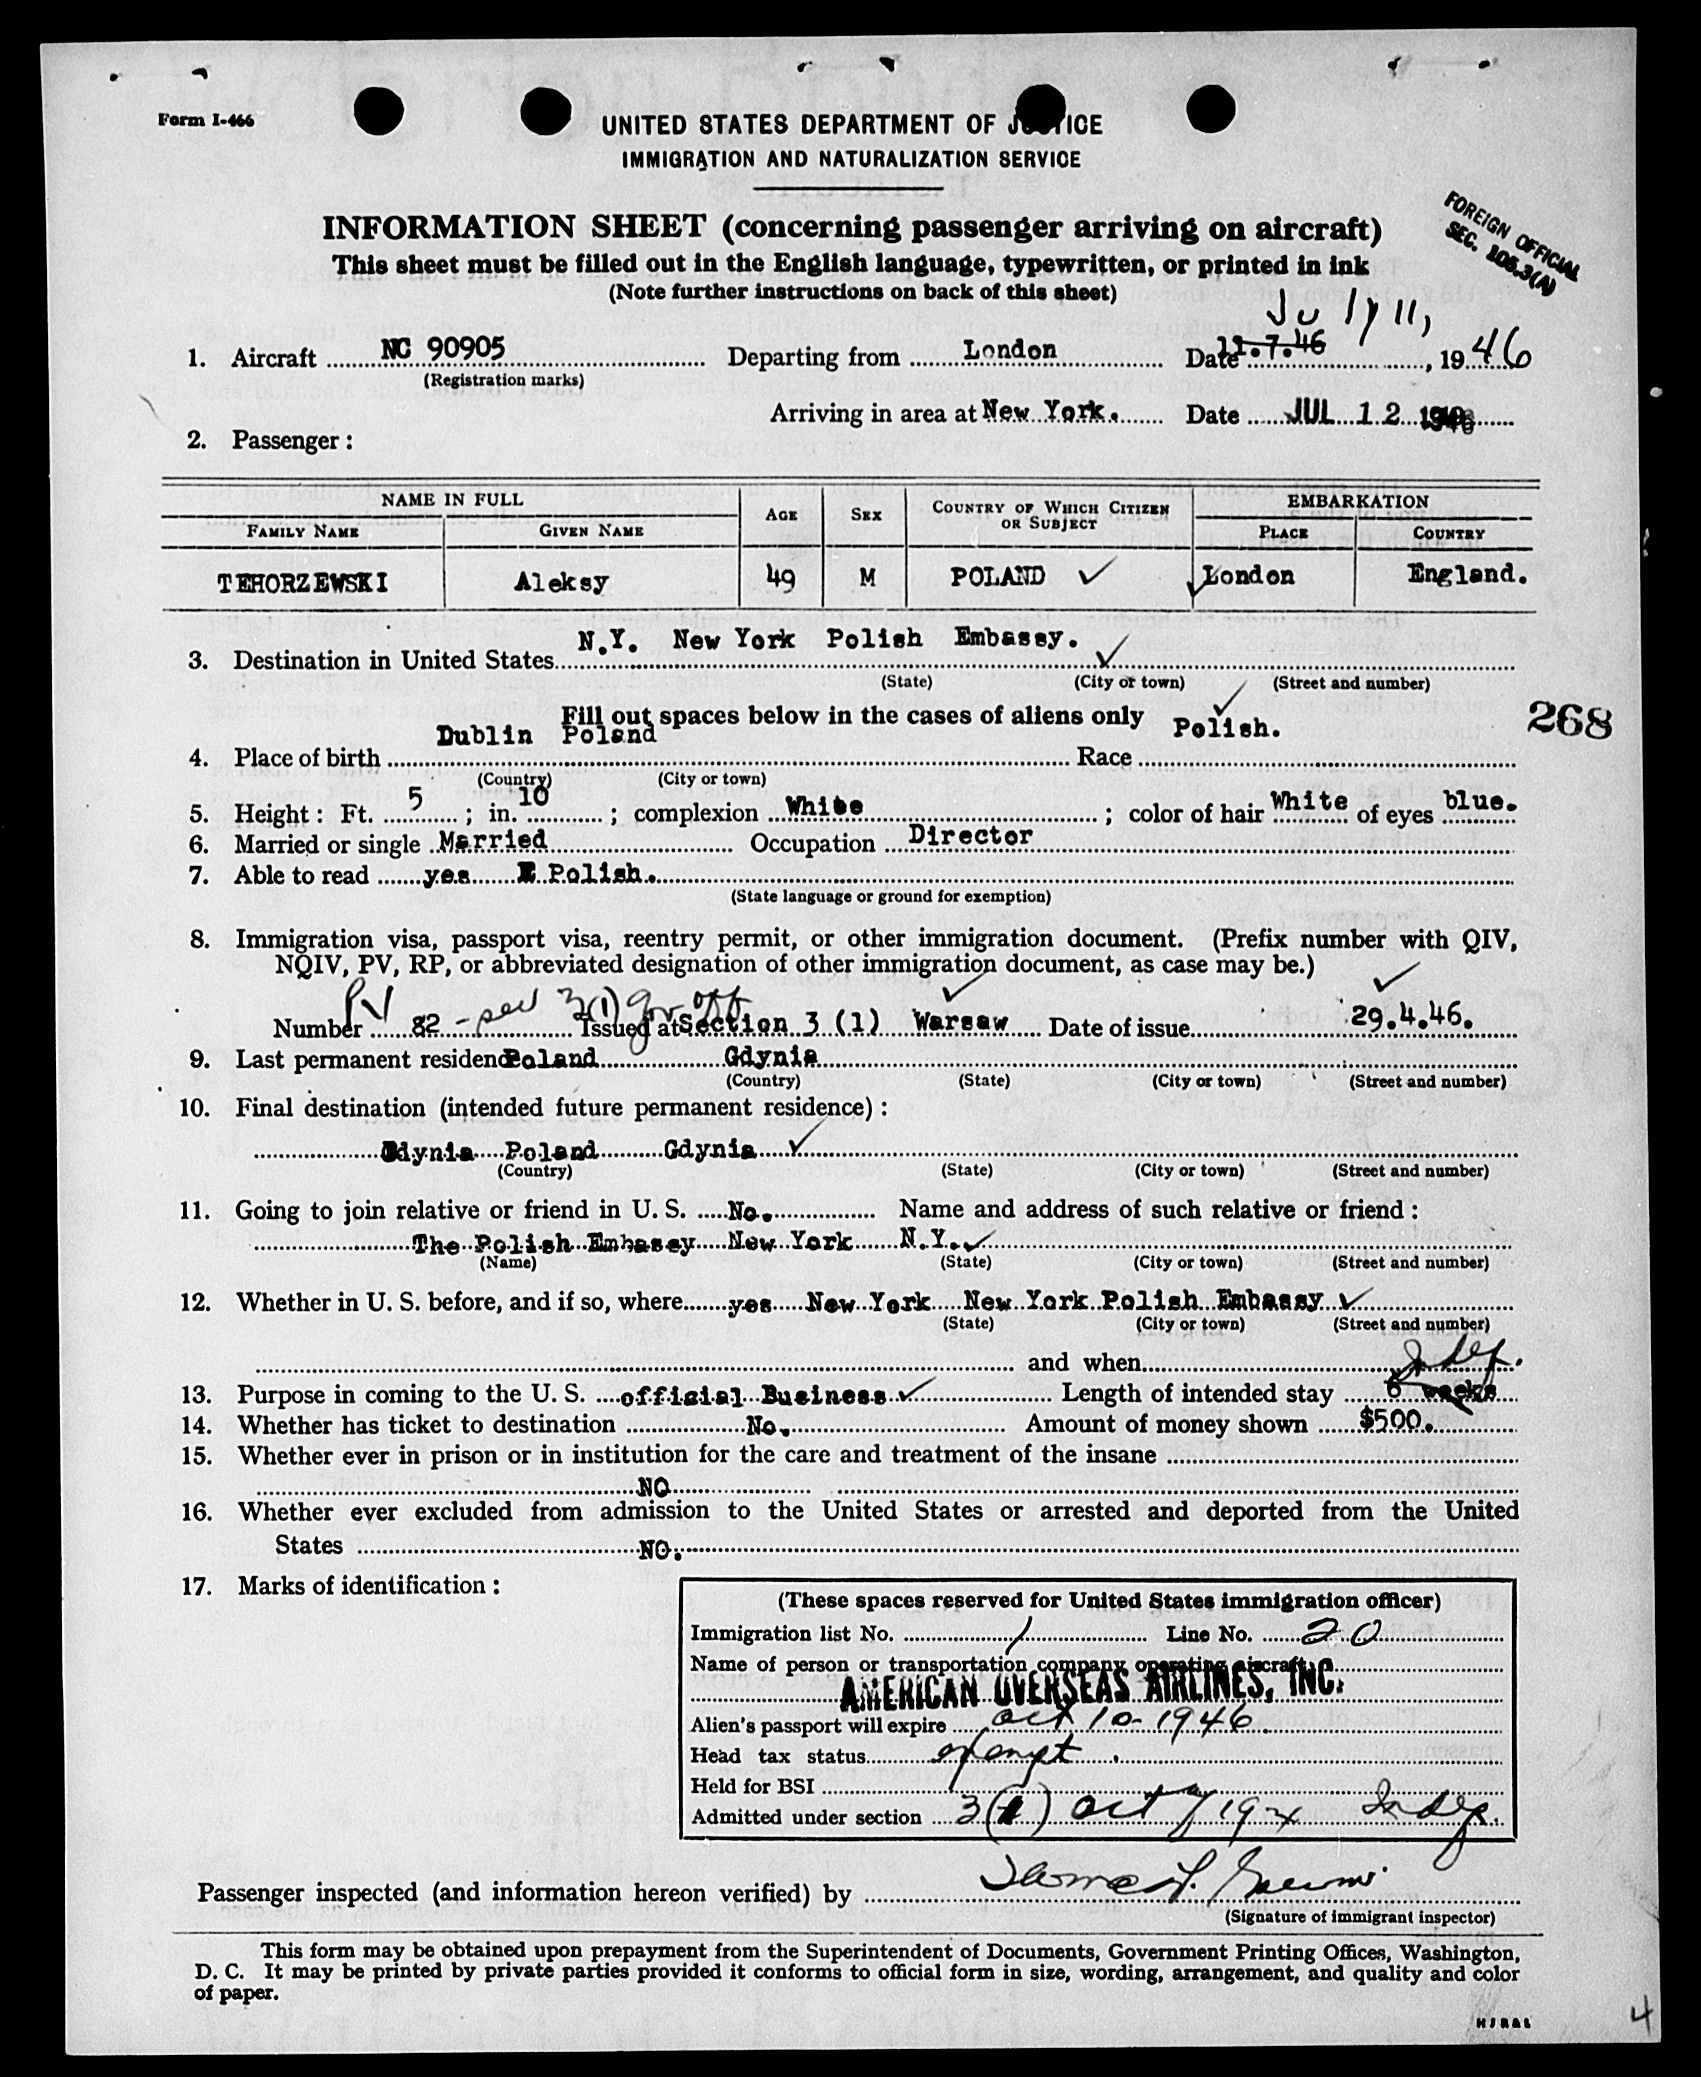 Form I-466
UNITED STATES DEPARTMENT OF JUSTICE
IMMIGRATION AND NATURALIZATION SERVICE
INFORMATION SHEET (concerning passenger arriving on aircraft)
This sheet must be filled out in the English language, typewritten, or printed in ink
(Note further instructions on back of this sheet)
FOREIGN OFFICIAL
SEC. 105.3(A)
July 11,
1. Aircraft NC 90905 Departing from London Date 11.7.46, 1946
(Registration marks)
Arriving in area at New York. Date JUL 12 1946
2. Passenger:
NAME IN FULL AGE SEX COUNTRY OF WHICH CITIZEN OR SUBJECT EMBARKATION
FAMILY NAME GIVEN NAME PLACE COUNTRY
TEHORZEWSKI Aleksy 49 M POLAND ✓ ✓London England.
3. Destination in United States N.Y. New York Polish Embassy. ✓
(State) (City or town) (Street and number)
Fill out spaces below in the cases of aliens only
268
4. Place of birth Dublin Poland Race Polish. ✓
(Country) (City or town)
5. Height: Ft. 5; in. 10; complexion White; color of hair White of eyes blue.
6. Married or single Married Occupation Director
7. Able to read yes E Polish.
(State language or ground for exemption)
8. Immigration visa, passport visa, reentry permit, or other immigration document. (Prefix number with QIV,
NQIV, PV, RP, or abbreviated designation of other immigration document, as case may be.)
PV 3(1) gov off ✓ ✓
Number 82 Issued at Section 3 (1) Warsaw Date of issue 29.4.46.
9. Last permanent residence Poland Gdynia
(Country) (State) (City or town) (Street and number)
10. Final destination (intended future permanent residence):
Gdynia Poland Gdynia ✓
(Country) (State) (City or town) (Street and number)
11. Going to join relative or friend in U. S. No. Name and address of such relative or friend:
The Polish Embassy New York N.Y. ✓
(Name) (State) (City or town) (Street and number)
12. Whether in U. S. before, and if so, where yes New York New York Polish Embassy ✓
(State) (City or town) (Street and number)
and when
Indef.
13. Purpose in coming to the U. S. official Business ✓ Length of intended stay 6 weeks
14. Whether has ticket to destination No. Amount of money shown $500.
15. Whether ever in prison or in institution for the care and treatment of the insane
NO
16. Whether ever excluded from admission to the United States or arrested and deported from the United
States NO.
17. Marks of identification:
(These spaces reserved for United States immigration officer)
Immigration list No. 1 Line No. 20
Name of person or transportation company operating aircraft
AMERICAN OVERSEAS AIRLINES, INC.
Alien's passport will expire Oct 10-1946
Head tax status exempt
Held for BSI
Admitted under section 3(1) act of 1924 Indef.
Passenger inspected (and information hereon verified) by
(Signature of immigrant inspector)
This form may be obtained upon prepayment from the Superintendent of Documents, Government Printing Offices, Washington,
D. C. It may be printed by private parties provided it conforms to official form in size, wording, arrangement, and quality and color
of paper.
4